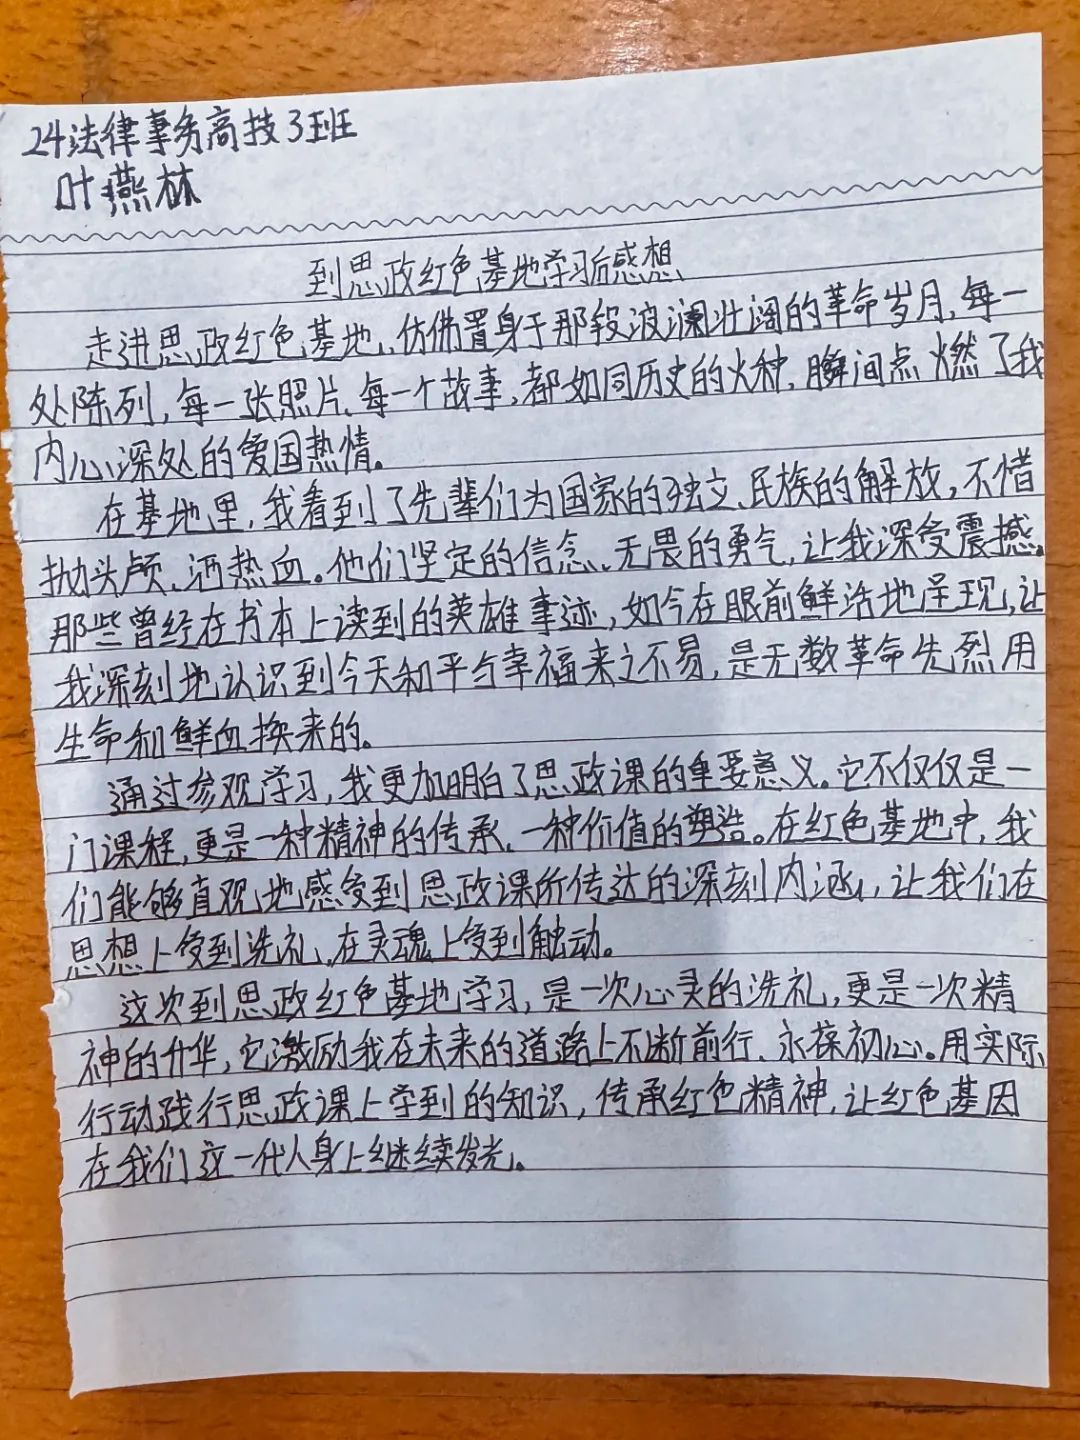 24法律事务高技3班
叶燕林
到思政红色基地学习后感想
走进思政红色基地、仿佛置身于那段波澜壮阔的革命岁月,每一
处陈列,每一张照片、每一个故事,都如同历史的火种,瞬间点燃了我
内心深处的爱国热情。
在基地里,我看到了先辈们为国家的独立、民族的解放,不惜
抛头颅、洒热血。他们坚定的信念、无畏的勇气,让我深受震撼。
那些曾经在书本上读到的英雄事迹,如今在眼前鲜活地呈现,让
我深刻地认识到今天和平与幸福来之不易,是无数革命先烈用
生命和鲜血换来的。
通过参观学习,我更加明白了思政课的重要意义。它不仅仅是一
门课程,更是一种精神的传承、一种价值的塑造。在红色基地中,我
们能够直观地感受到思政课所传达的深刻内涵,让我们在
思想上受到洗礼,在灵魂上受到触动。
这次到思政红色基地学习,是一次心灵的洗礼,更是一次精
神的升华,它激励我在未来的道路上不断前行、永葆初心。用实际
行动践行思政课上学到的知识,传承红色精神,让红色基因
在我们这一代人身上继续发光。